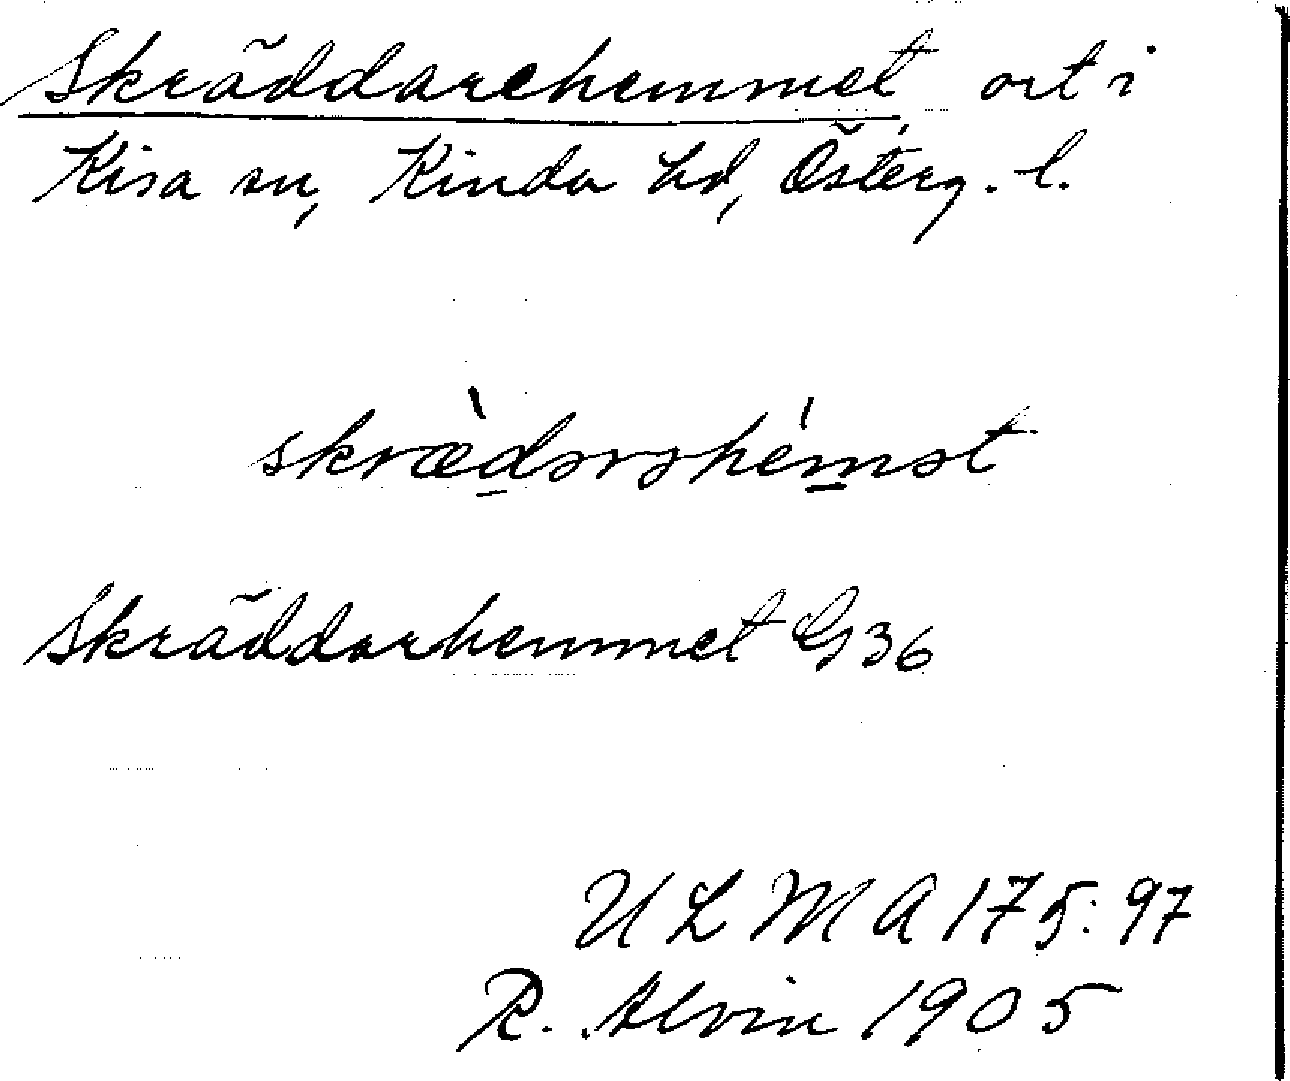 Skräddarehemmet ort i
Kisa sn, Kinda hd, Österg. l.
skrædərəhemət
Skräddarhemmet G 36
ULMA 175:97
R. Alvin 1905